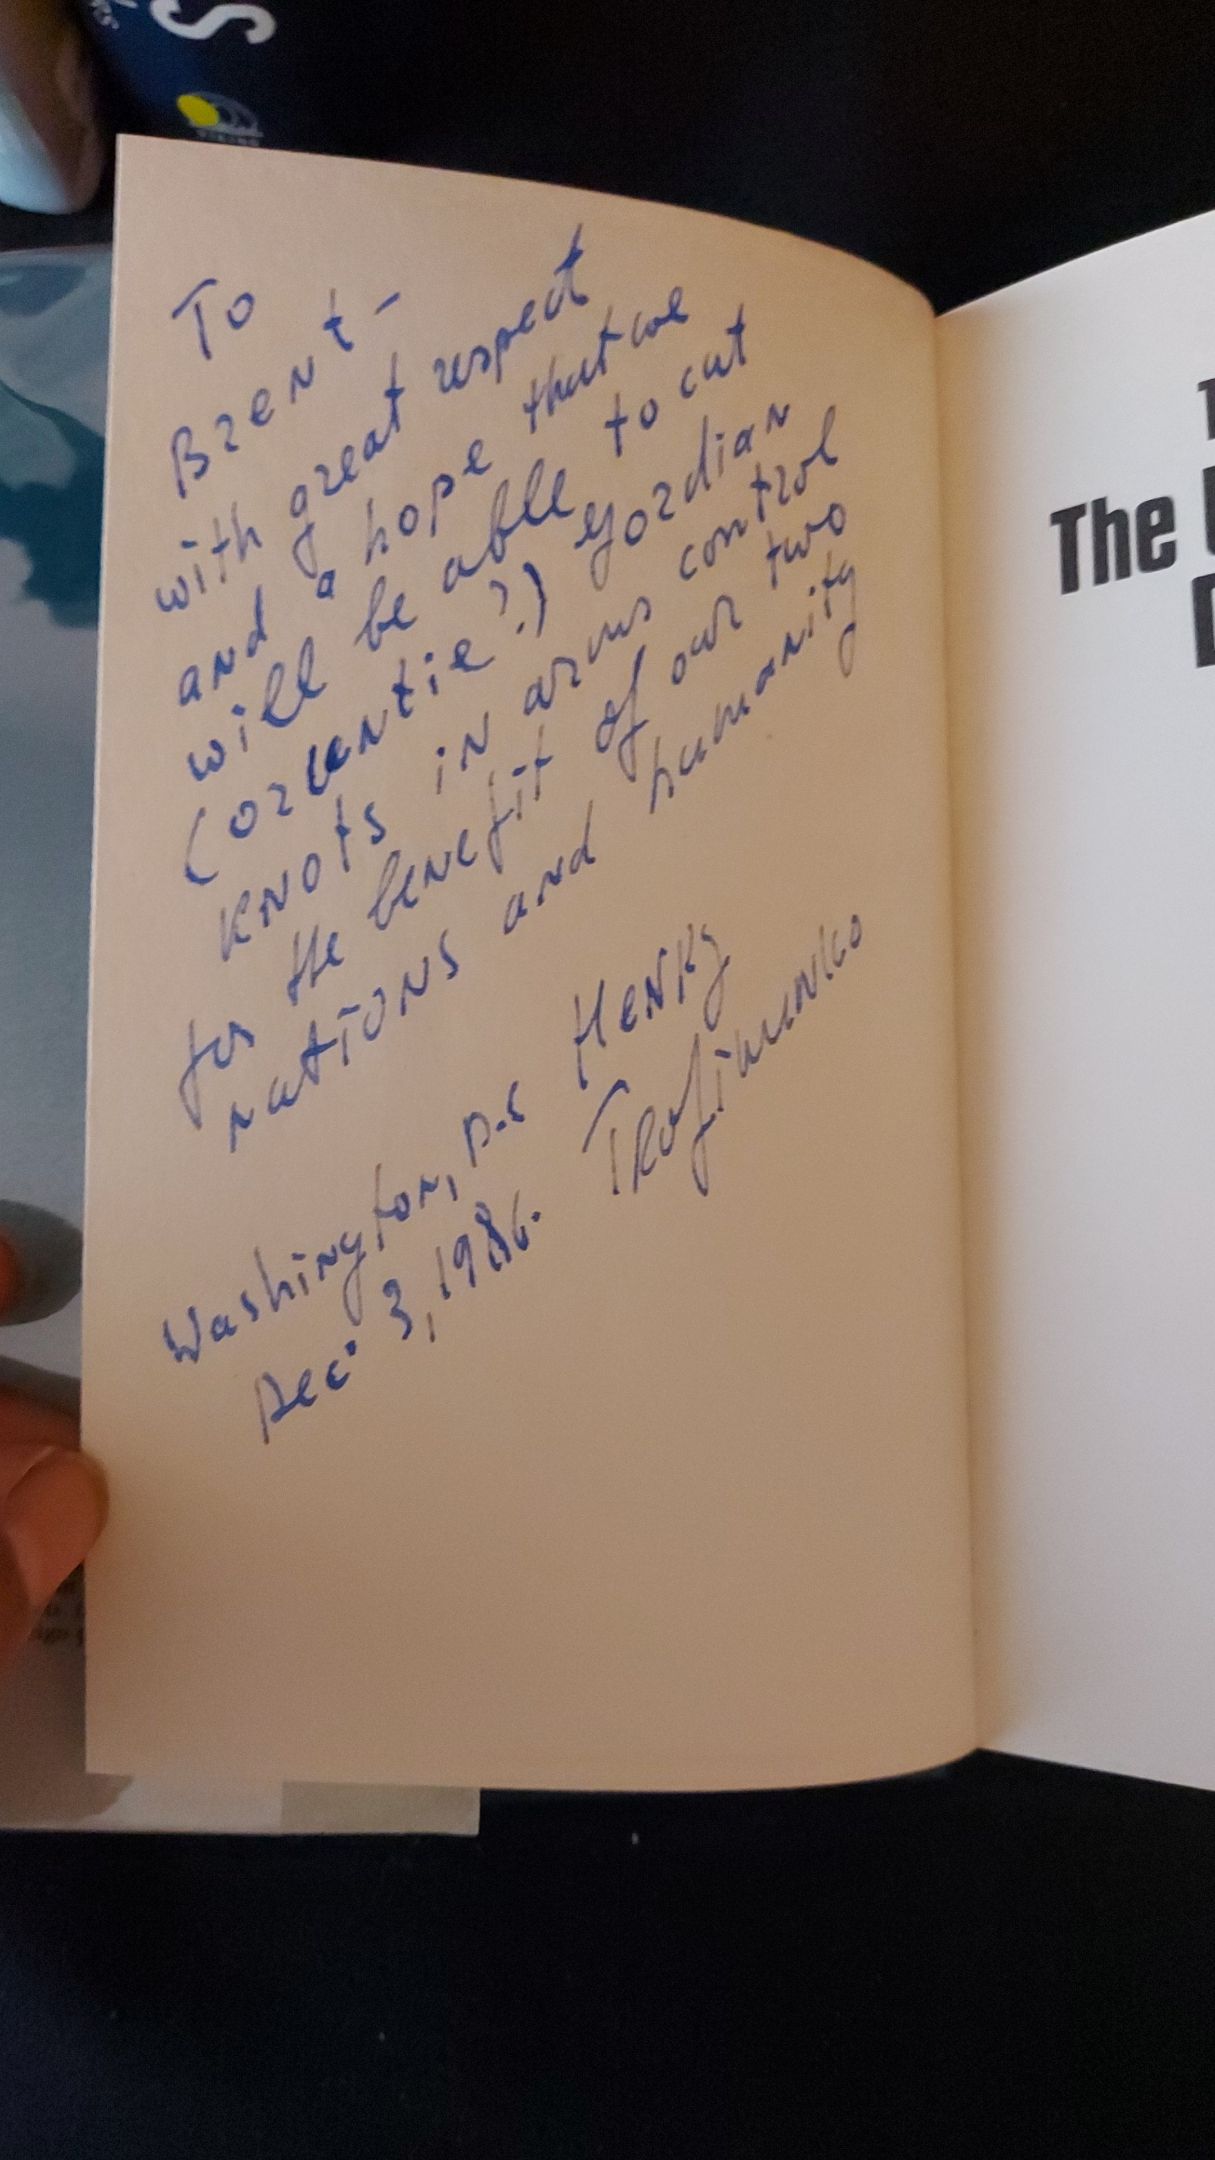 To
Brent –
with great respect
and a hope that we
will be able to cut
(or untie?) gordian
knots in arms control
for the benefit of our two
nations and humanity
Henry
Trofimenko
Washington, D.C
Dec. 3, 1986.
The